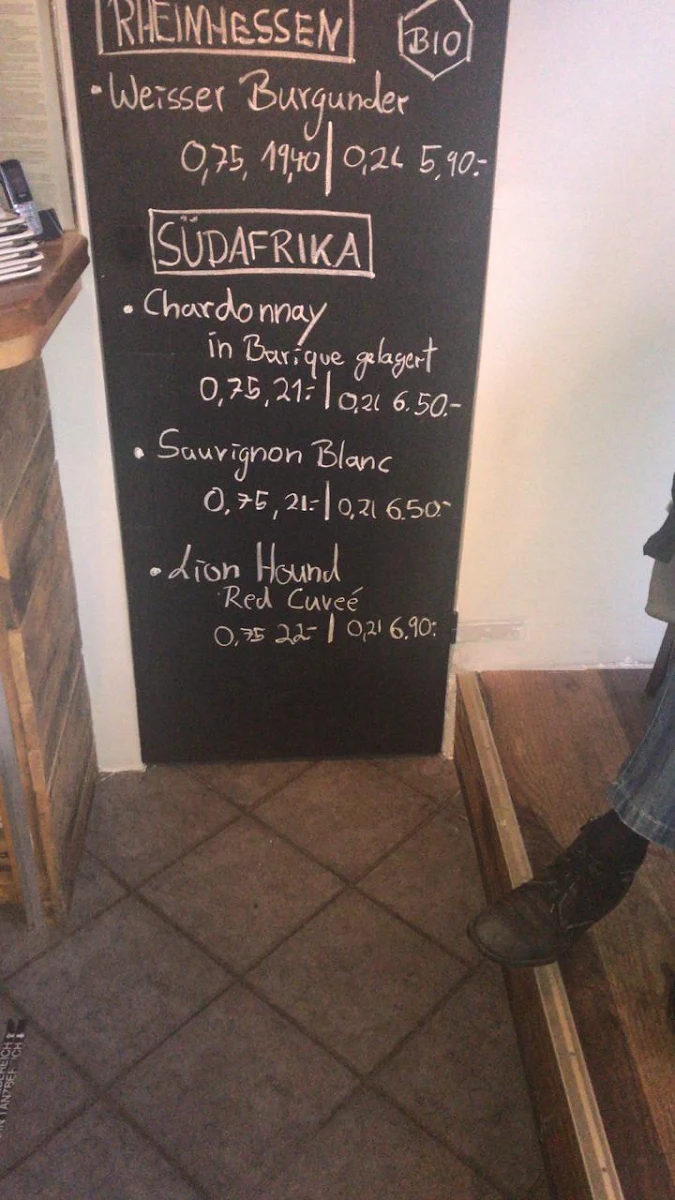 RHEINHESSEN BIO
• Weisser Burgunder
0,75, 19,40 | 0,2l 5,90.-
SÜDAFRIKA
• Chardonnay
in Barique gelagert
0,75, 21.- | 0,2l 6.50.-
• Sauvignon Blanc
0,75, 21.- | 0,2l 6.50.-
• Lion Hound
Red Cuveé
0,75 22.- | 0,2l 6,90.-